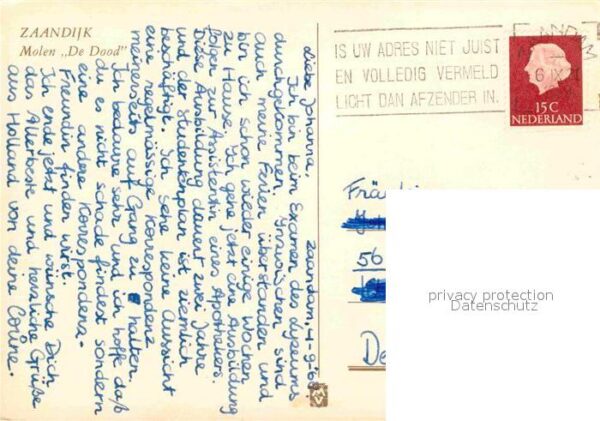 ZAANDIJK
Molen „De Dood"
Zaandam,
Liebe Johanna,
Ich bin beim Examen des Lyseums
durchgekommen. Inzwischen sind
auch meine Ferien überstanden und
bin ich schon wieder einige Wochen
zu Hause. Ich gehe jetzt die Ausbildung
folgen zur Assistentin eines Apothekers.
Diese Ausbildung dauert zwei Jahre
und der Studentenplan ist ziemlich
beschäftigt. Ich sehe keine Aussicht
eine regelmässige Korrespondenz
meinerseits auf Gang zu halten.
Ich bedaure sehr und ich hoffe daß
du es nicht schade findest sondern
eine andere Korrespondenz-
Freundin finden wirst.
Ich ende jetzt und wünsche Dich
das Allerbeste und herzliche Grüße
aus Holland von deine Corine.
IS UW ADRES NIET JUIST
EN VOLLEDIG VERMELD
LICHT DAN AFZENDER IN.
15C
NEDERLAND
Fräulein
56
De
privacy protection
Datenschutz